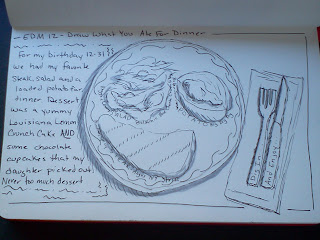 - EDM 12 - Draw What You Ate For Dinner -
For my birthday 12-31
we had my favorite
steak, salad and a
loaded potato for
dinner Dessert
was a yummy
Louisiana
Crunch Cake AND
some chocolate
cupcakes that my
daughter picked out!
Never too much dessert
SALAD
And Enjoy